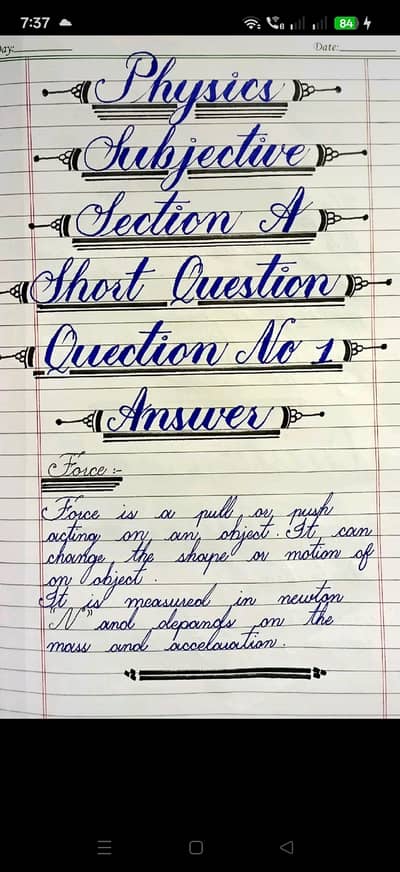 7:37
84
Day:
Date:
Physics
Subjective
Section A
Short Question
Quection No 1
Answer
Force :-
Force is a pull or push
acting on an object. It can
change the shape or motion of
on object.
It is measured in newton
"N" and depands on the
mass and accelaration.